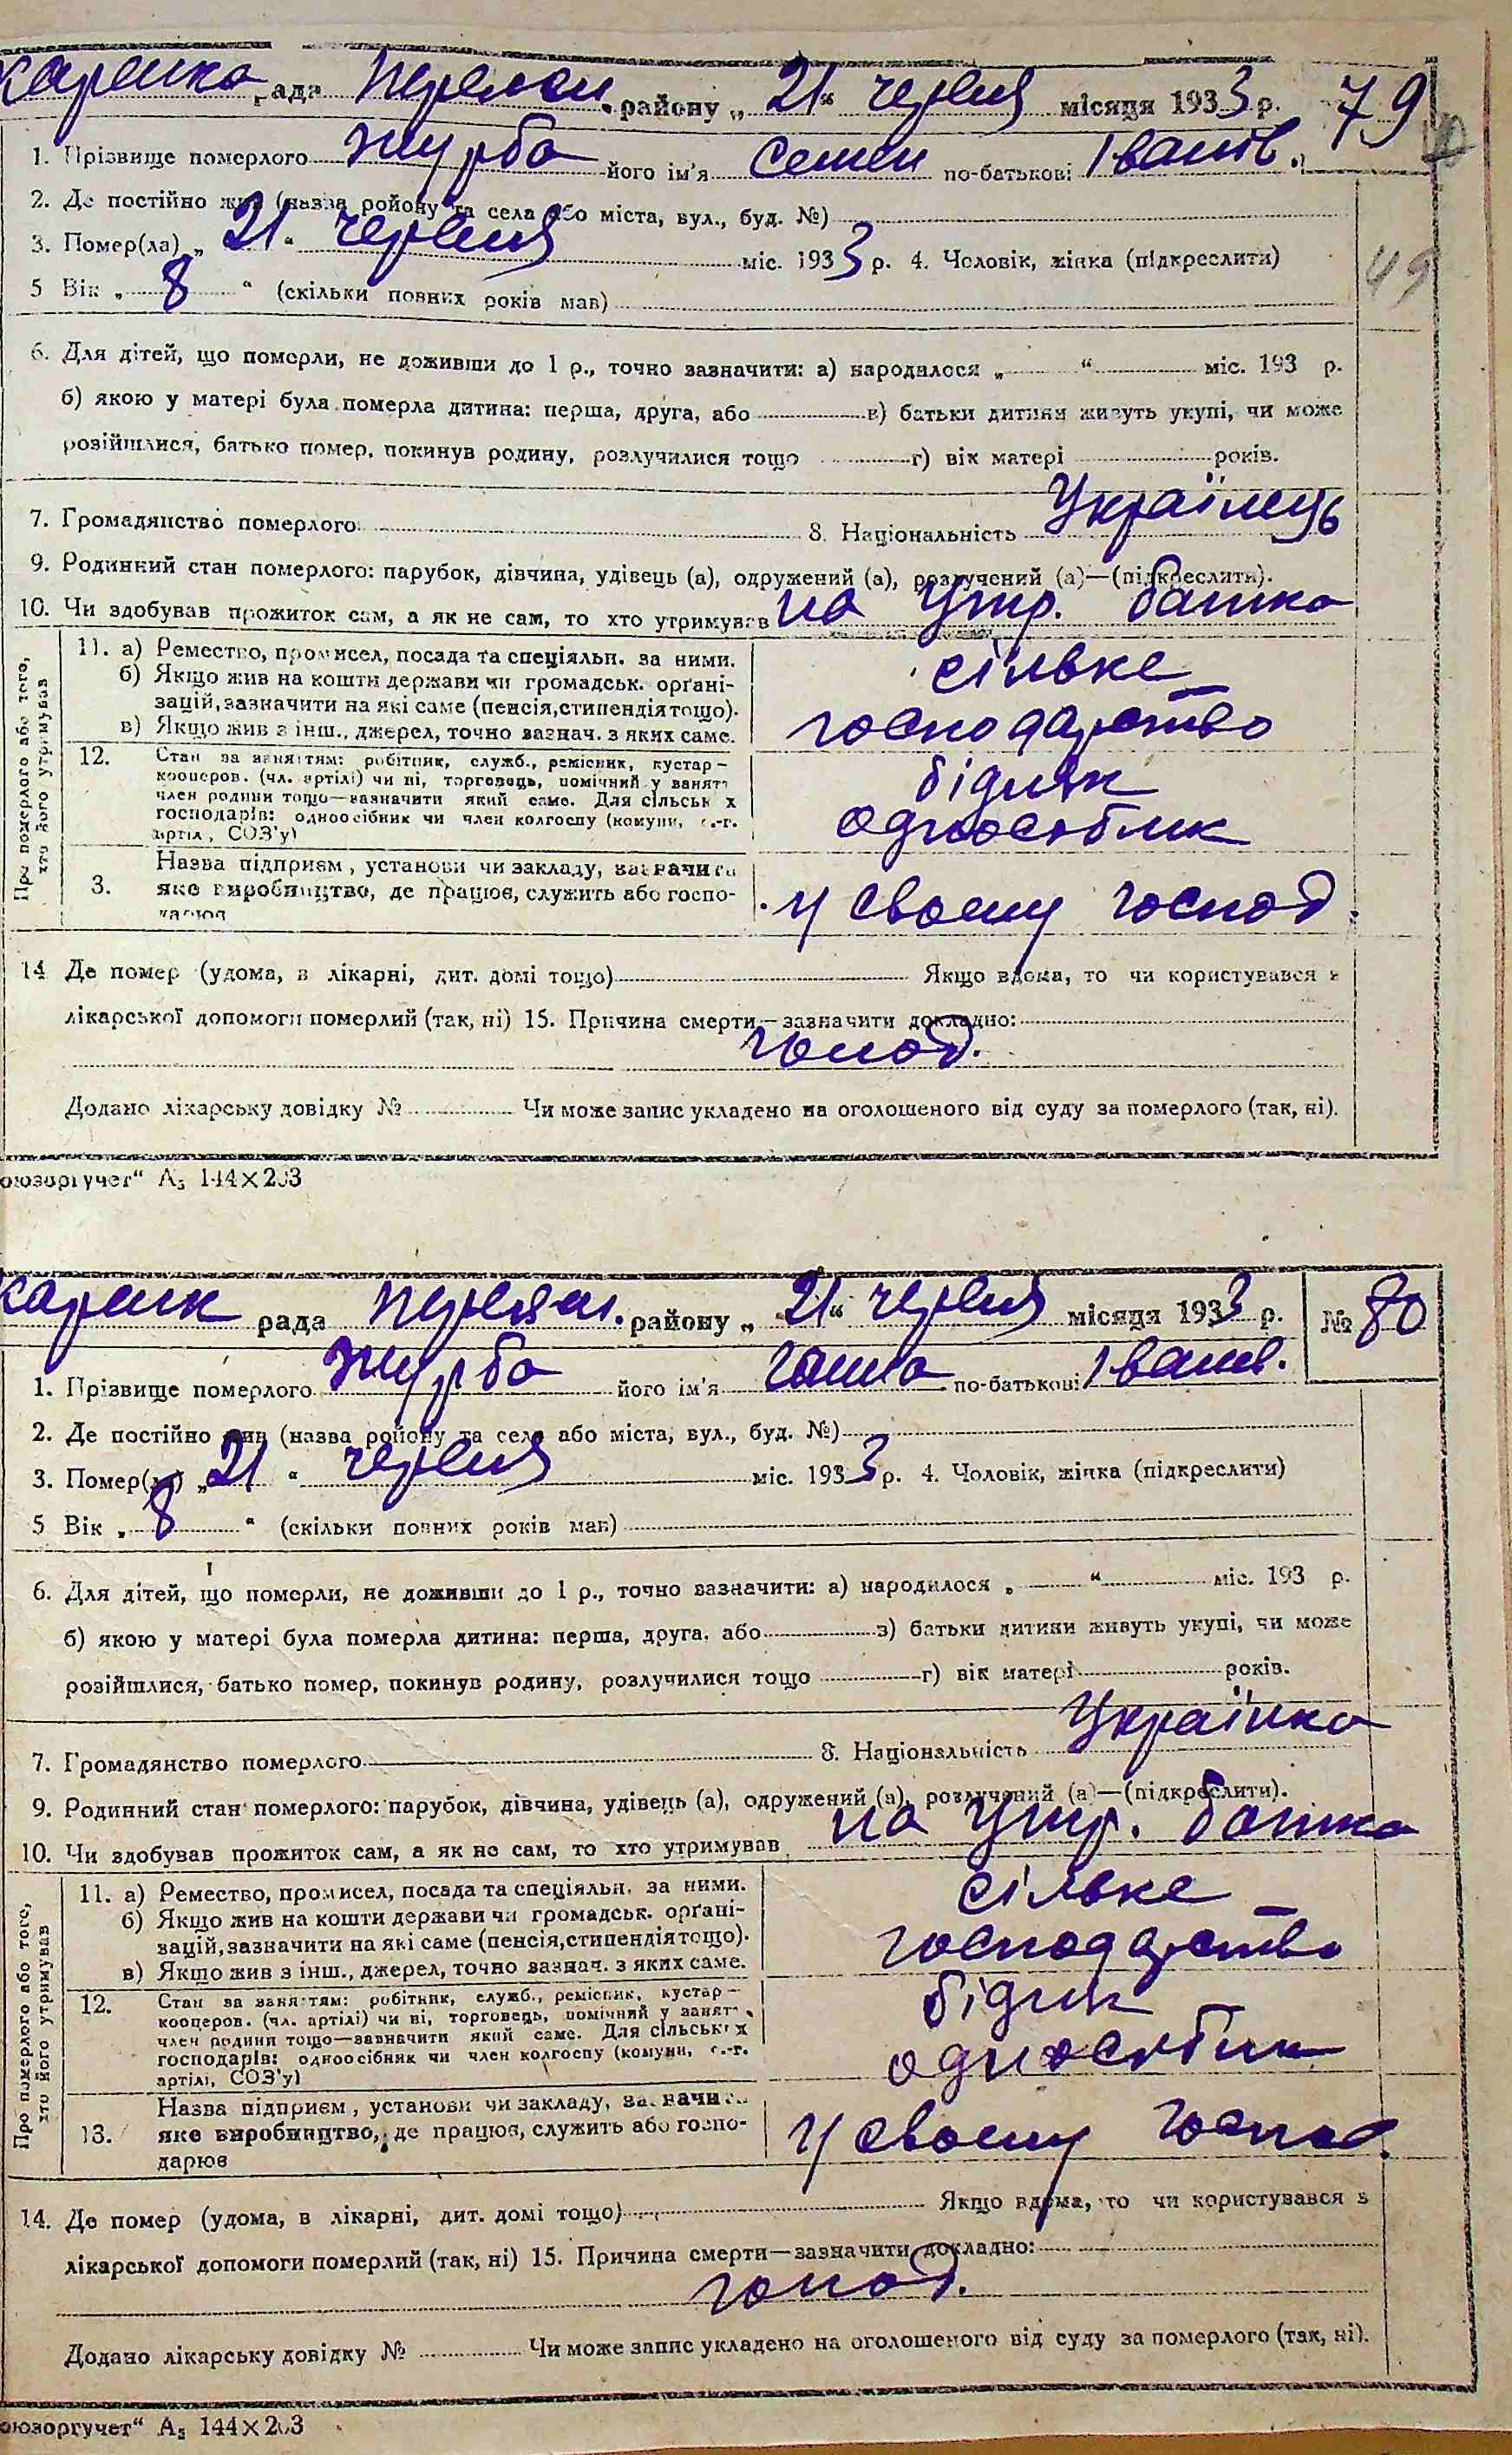 рада район у „21“ червня місяця 1933 р. 79
1. Прізвище померлого Журба його ім'я Семен по-батькові Іванів.
2. Де постійно жив (назва ройону та села або міста, вул., буд. №)
3. Помер(ла) „21“ червня міс. 1933 р. 4. Чоловік, жінка (підкреслити)
5 Вік „8“ (скільки повних років мав)
49
6. Для дітей, що померли, не доживши до 1 р., точно зазначити: а) народилося „ “ міс. 193 р.
б) якою у матері була померла дитина: перша, друга, або в) батьки дитини живуть укупі, чи може
розійшлися, батько помер, покинув родину, розлучилися тощо г) вік матері років.
7. Громадянство померлого 8. Національність Українець
9. Родинний стан померлого: парубок, дівчина, удівець (а), одружений (а), розлучений (а)—(підкреслити).
10. Чи здобував прожиток сам, а як не сам, то хто утримував на утр. батька
Про померлого або того,
хто його утримував
11. а) Ремество, промисел, посада та спеціяльн. за ними.
б) Якщо жив на кошти держави чи громадськ. орґані-
зацій, зазначити на які саме (пенсія, стипендія тощо).
в) Якщо жив з інш., джерел, точно зазнач. з яких саме.
сільське
господарство
12. Стан за заняттям: робітник, служб., ремісник, кустар—
кооперов. (чл. артілі) чи ні, торговець, помічний у занят
член родини тощо—зазначити який саме. Для сільськ х
господарів: одноосібник чи член колгоспу (комуни, с.-г.
артіл, СОЗ'у)
бідняк
одноосібник
3. Назва підприєм, установи чи закладу, зазначити
яке виробництво, де працює, служить або госпо-
дарює
у своєму господ.
14 Де помер (удома, в лікарні, дит. домі тощо) Якщо вдома, то чи користувався з
лікарської допомоги померлий (так, ні) 15. Причина смерти—зазначити докладно:
голод.
Додано лікарську довідку № Чи може запис укладено на оголошеного від суду за померлого (так, ні).
оюзоргучет“ А5 144×203
рада район у „21“ червня місяця 1933 р. № 80
1. Прізвище померлого Журба його ім'я по-батькові Іванів.
2. Де постійно жив (назва ройону та села або міста, вул., буд. №)
3. Помер(ла) „21“ червня міс. 1933 р. 4. Чоловік, жінка (підкреслити)
5 Вік „8“ (скільки повних років мав)
6. Для дітей, що померли, не доживши до 1 р., точно зазначити: а) народилося „ “ міс. 193 р.
б) якою у матері була померла дитина: перша, друга, або в) батьки дитини живуть укупі, чи може
розійшлися, батько помер, покинув родину, розлучилися тощо г) вік матері років.
7. Громадянство померлого 8. Національність Українка
9. Родинний стан померлого: парубок, дівчина, удівець (а), одружений (а), розлучений (а)—(підкреслити).
10. Чи здобував прожиток сам, а як не сам, то хто утримував на утр. батька
Про померлого або того,
хто його утримував
11. а) Ремество, промисел, посада та спеціяльн. за ними.
б) Якщо жив на кошти держави чи громадськ. орґані-
зацій, зазначити на які саме (пенсія, стипендія тощо).
в) Якщо жив з інш., джерел, точно зазнач. з яких саме.
сільське
господарство
12. Стан за заняттям: робітник, служб., ремісник, кустар—
кооперов. (чл. артілі) чи ні, торговець, помічний у занят
член родини тощо—зазначити який саме. Для сільськ х
господарів: одноосібник чи член колгоспу (комуни, с.-г.
артілі, СОЗ'у)
бідняк
одноосібник
13. Назва підприєм, установи чи закладу, зазначити
яке виробництво, де працює, служить або госпо-
дарює
у своєму господ.
14. Де помер (удома, в лікарні, дит. домі тощо) Якщо вдома, то чи користувався з
лікарської допомоги померлий (так, ні) 15. Причина смерти—зазначити докладно:
голод.
Додано лікарську довідку № Чи може запис укладено на оголошеного від суду за померлого (так, ні).
оюзоргучет“ А5 144×203